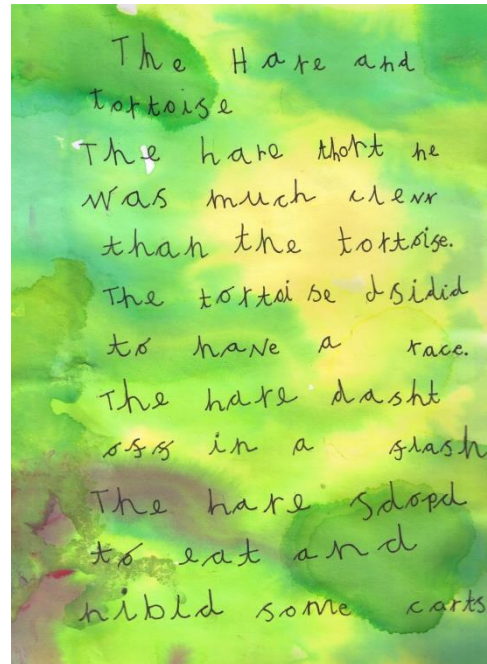 The Hare and
tortoise
The hare thort he
was much clevr
than the tortoise.
The tortoise dsidid
to have a race.
The hare dasht
off in a flash
The hare sdopd
to eat and
nibld some carts